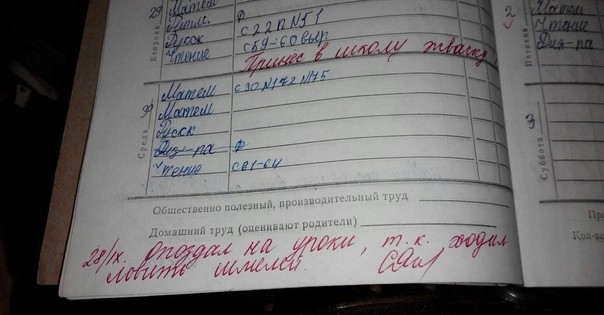 29
Вторник
Матем
Чтен. Ф
Русск с 22 П N 51
Чтение с 59-60 выр
Принёс в школу жвачку
30
Среда
Матем с 30 N 172 N 175
Матем
Русск
Физ-ра Ф
Чтение с 61-64
Общественно полезный, производительный труд
Домашний труд (оценивают родители)
28/IX. Опоздал на уроки, т.к. ходил
ловить шмелей.
2
Пятница
Матем
Чтение
Физ-ра
3
Суббота
Кол-во